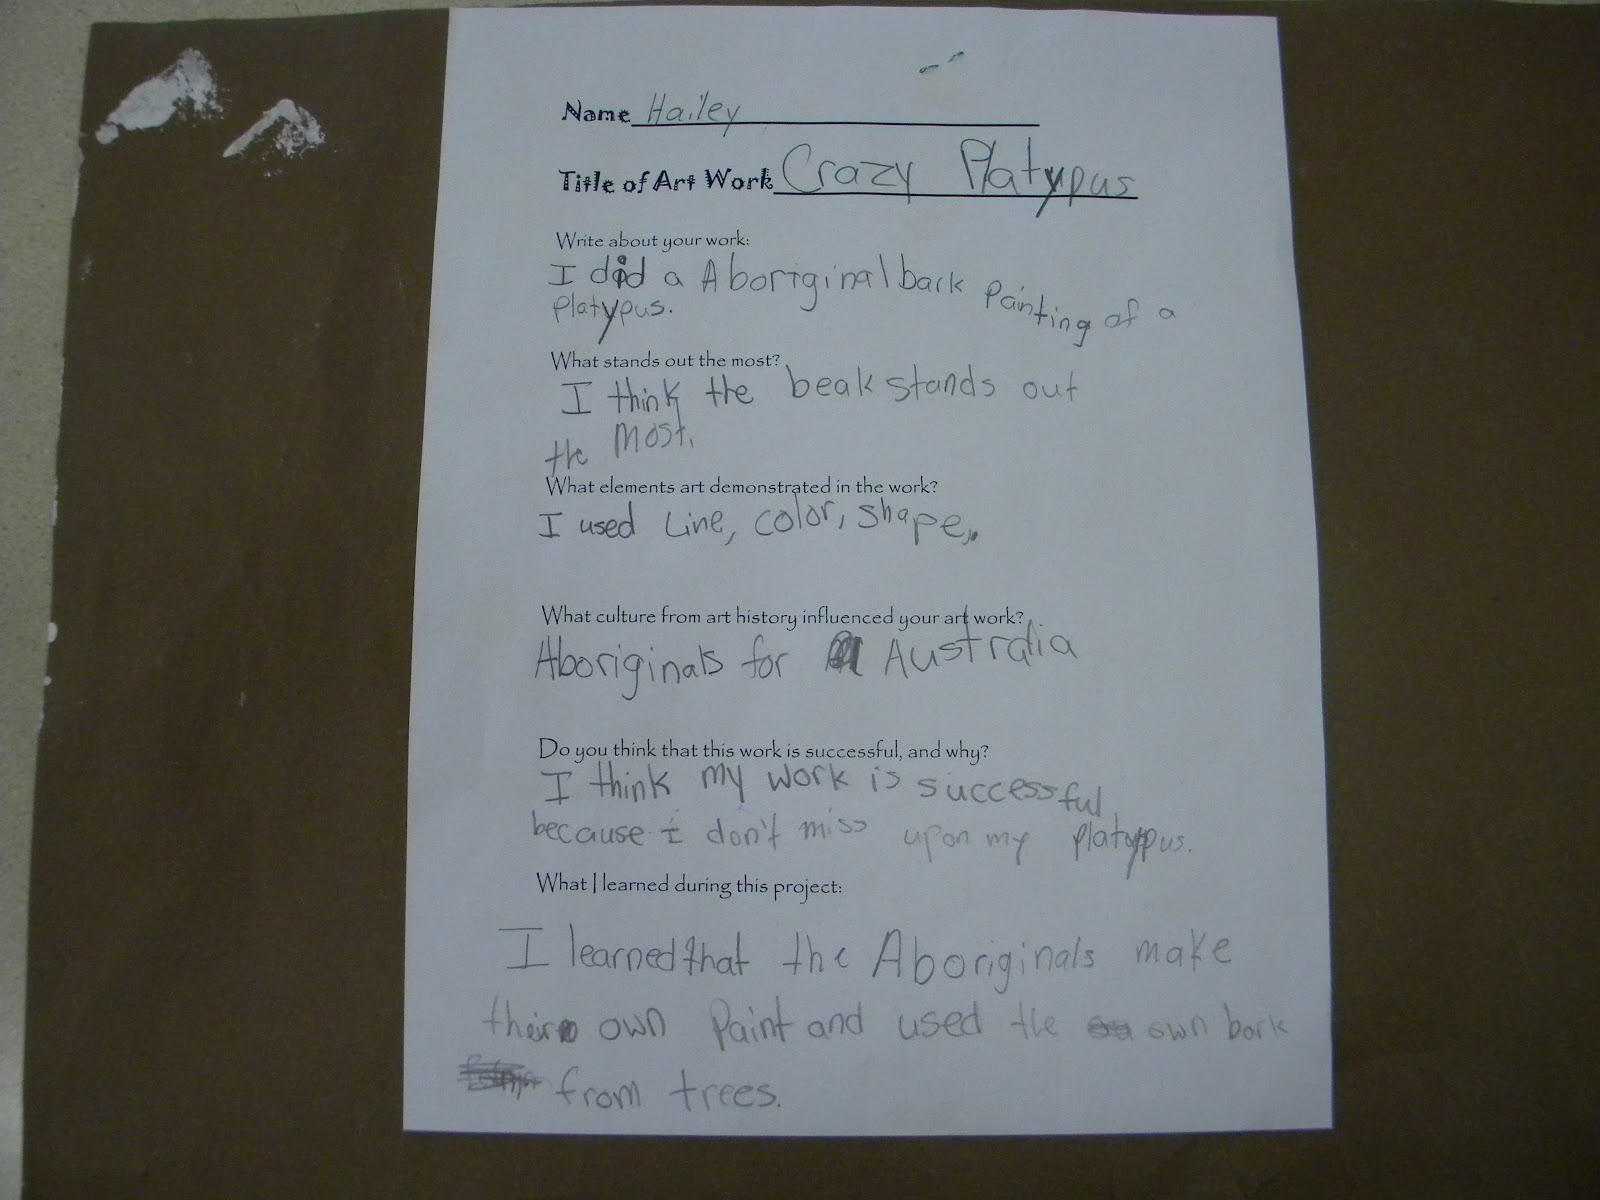 Name Hailey
Title of Art Work Crazy Platypus
Write about your work:
I did a Aboriginal bark Painting of a
Platypus.
What stands out the most?
I think the beak stands out
the Most.
What elements art demonstrated in the work?
I used Line, color, shape.
What culture from art history influenced your art work?
Aboriginals for Australia
Do you think that this work is successful, and why?
I think my work is successful
because i don't miss upon my platypus.
What I learned during this project:
I learned that the Aboriginals make
their own Paint and used the own bark
from trees.